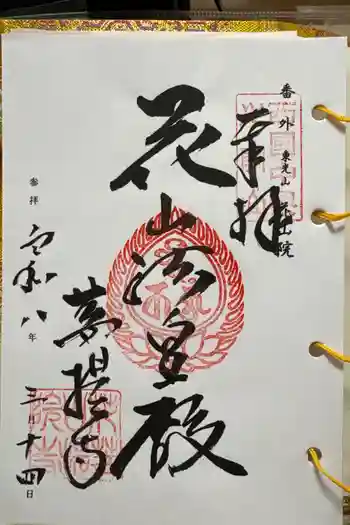 番外 東光山 花山院
奉拝
花山法皇殿
菩提寺
参拝 令和八年 三月十四日